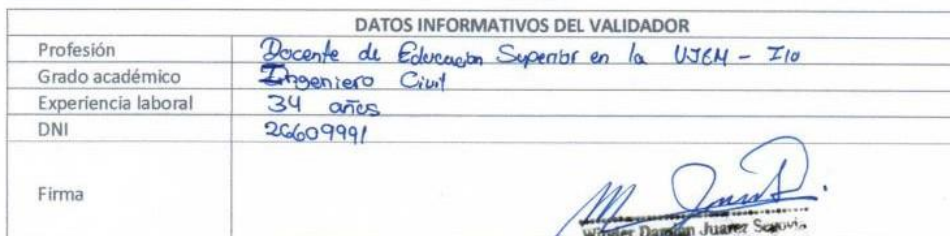 DATOS INFORMATIVOS DEL VALIDADOR
Profesión Docente de Educación Superior en la UJCM - Ilo
Grado académico Ingeniero Civil
Experiencia laboral 34 años
DNI 26609991
Firma
Damián Juarez Segovia